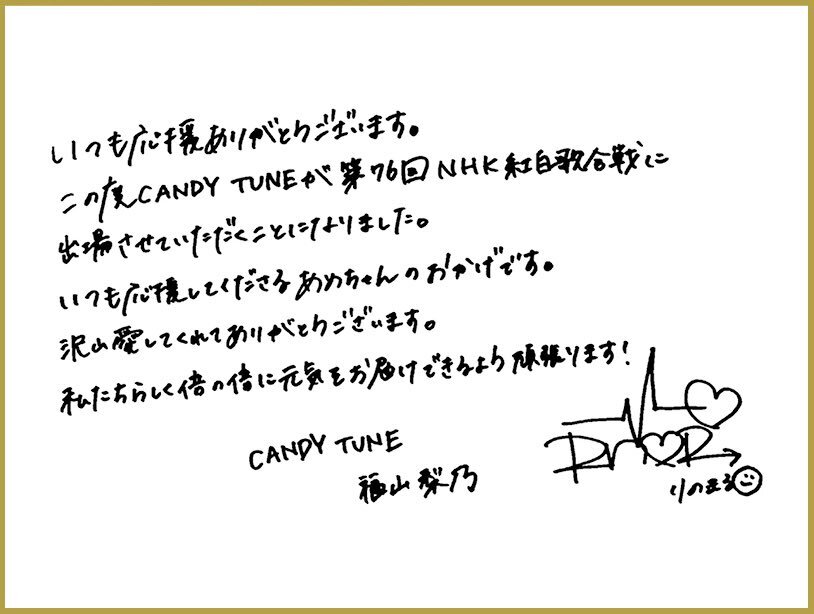 いつも応援ありがとうございます。
この度CANDY TUNEが第76回NHK紅白歌合戦に
出場させていただくことになりました。
いつも応援してくださるあめちゃんのおかげです。
沢山愛してくれてありがとうございます。
私たちらしく倍の倍に元気をお届けできるよう頑張ります!
CANDY TUNE
福山梨乃
りのまる